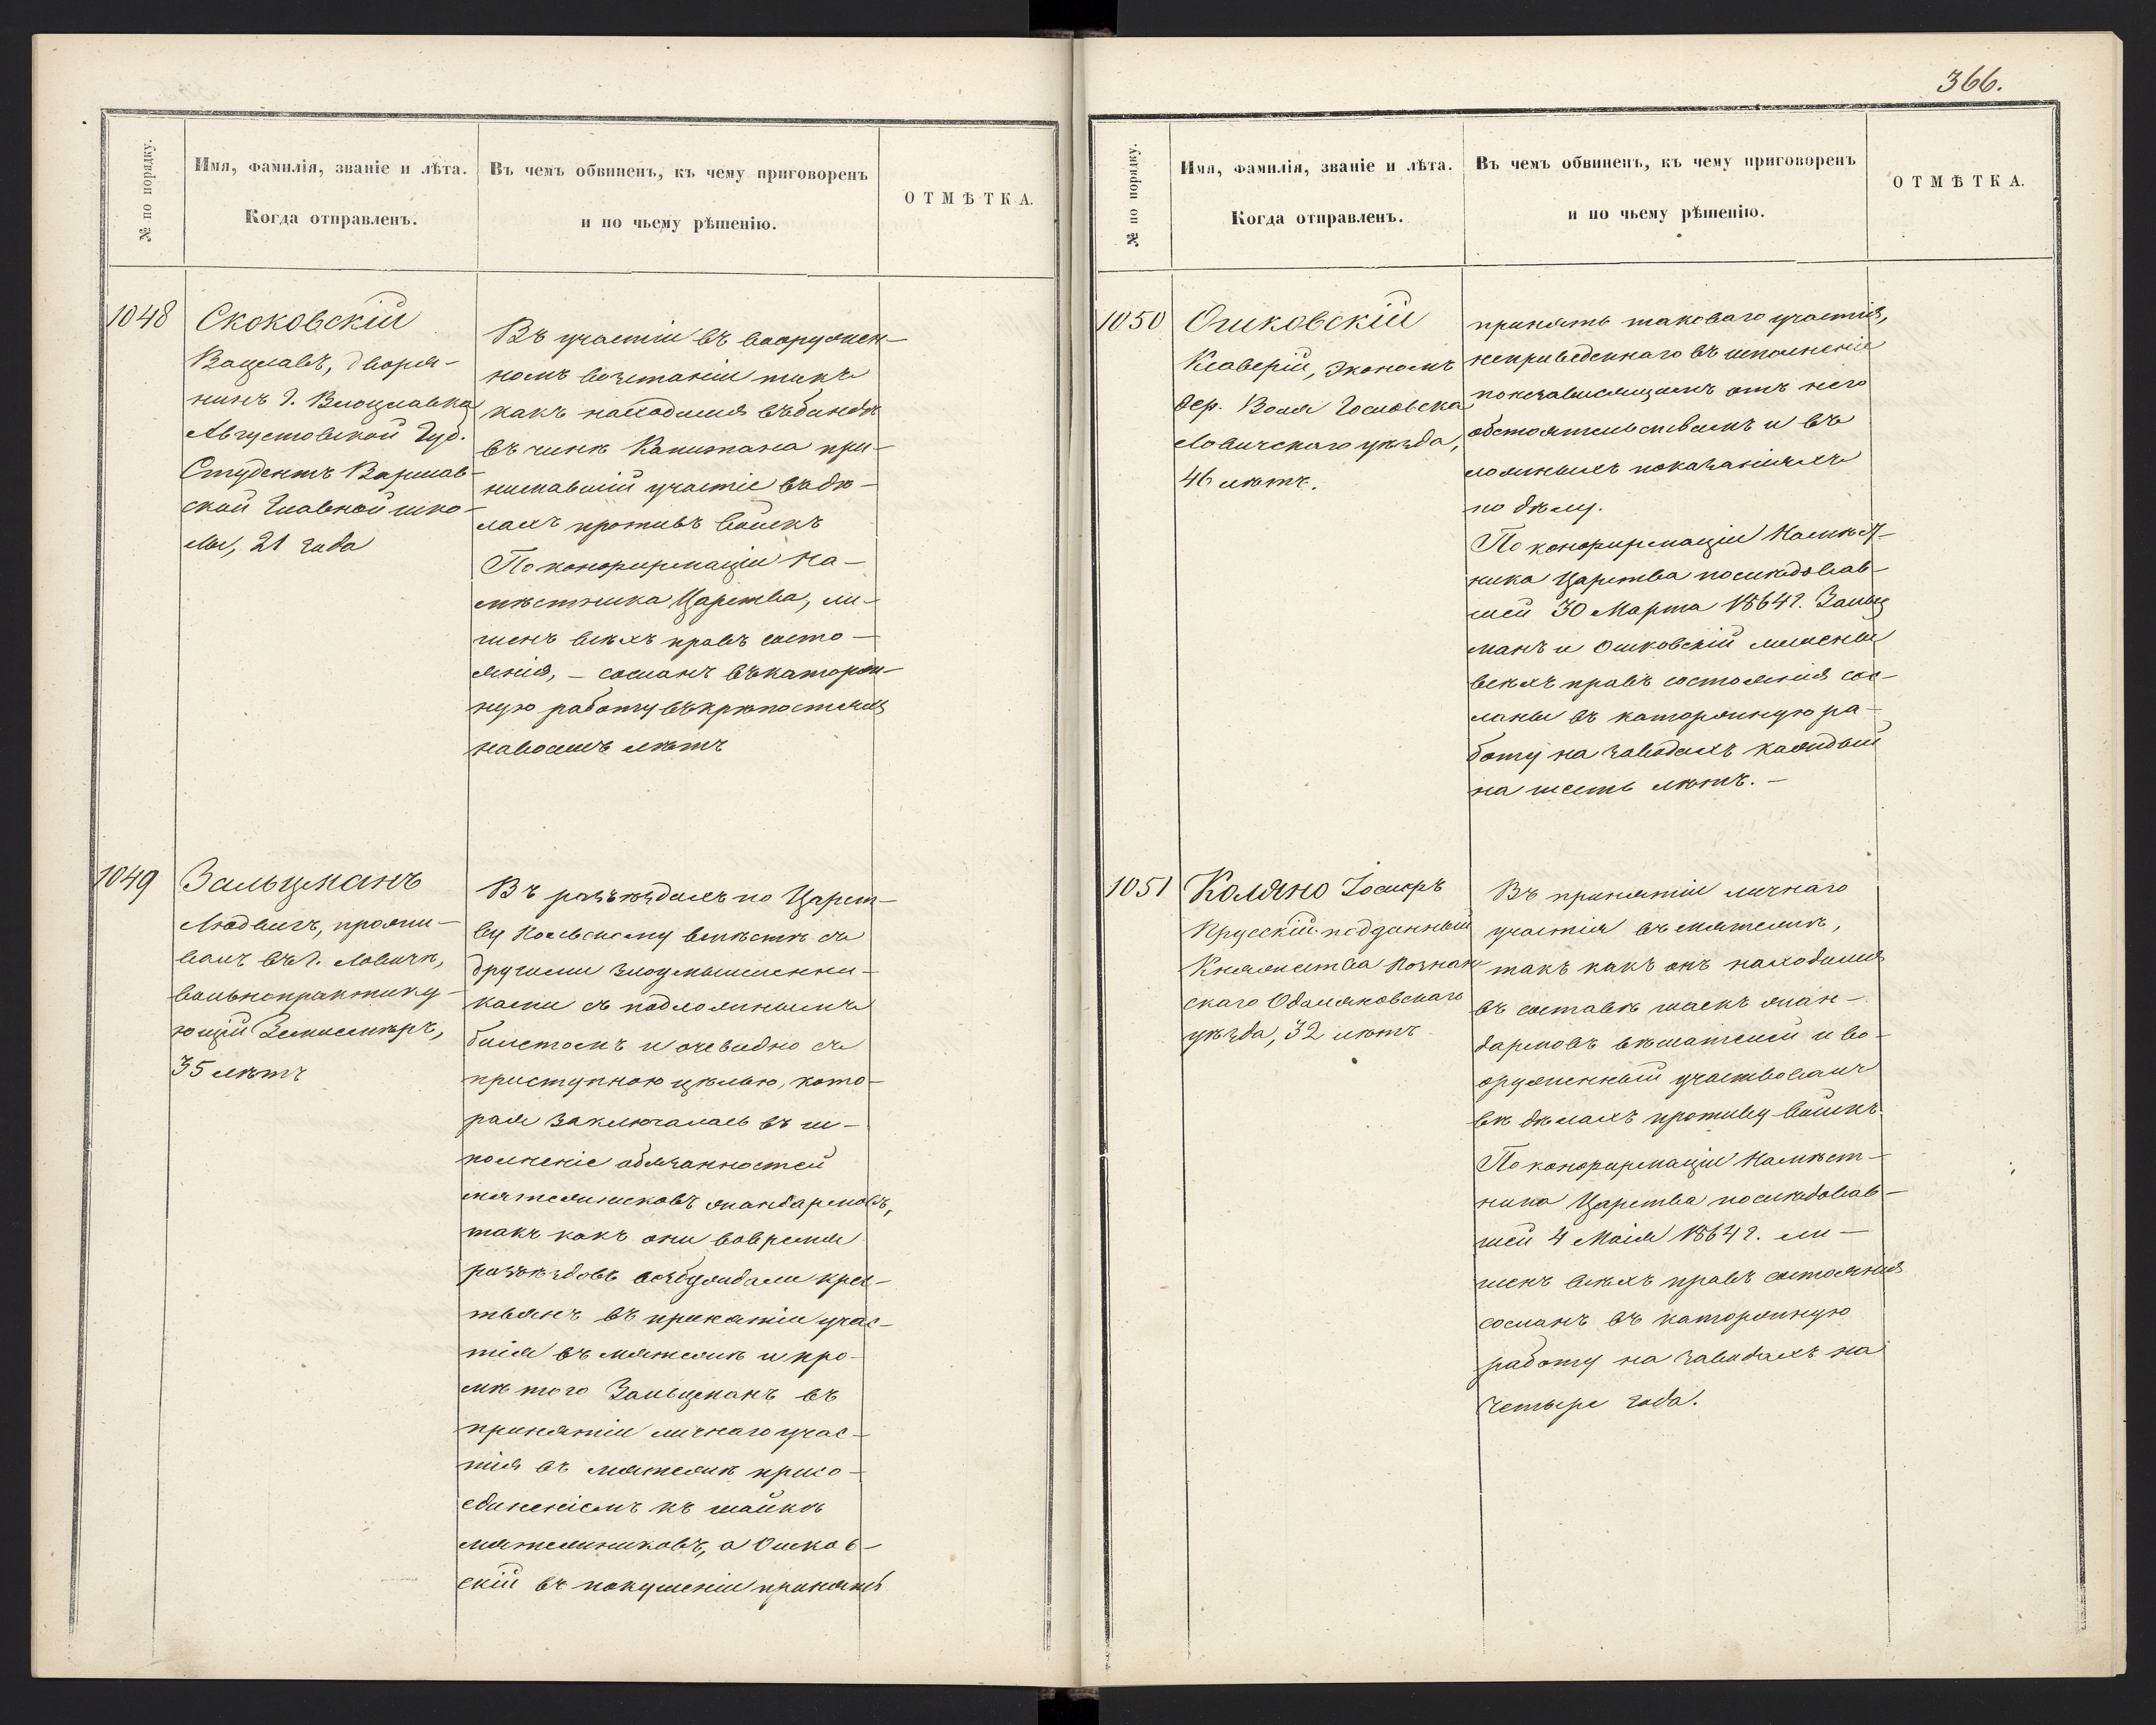 366.
№ по порядку.
Имя, фамилія, званіе и лѣта.
Когда отправленъ.
Въ чемъ обвиненъ, къ чему приговоренъ
и по чьему рѣшенію.
ОТМѢТКА.
1048
Скоковскій
Вацлавъ, дворя-
нинъ г. Влоцлавка
Августовской Губ.
Студентъ Варшав-
ской Главной шко-
лы, 21 года
Въ участіи въ вооружен-
номъ возстаніи такъ
какъ находился въ бандѣ
въ чинѣ Капитана при-
нимавшій участіе въ дѣ-
лахъ противъ войскъ
По конфирмаціи На-
мѣстника Царства, ли-
шенъ всѣхъ правъ состо-
янія, – сосланъ въ каторж-
ную работу въ крѣпостяхъ
на восемь лѣтъ
1049
Зальцманъ
Людвигъ, прожи-
валъ въ г. Ловичѣ,
вольнопрактику-
ющій Землемѣръ,
35 лѣтъ
Въ разъѣздахъ по Царст-
ву Польскому вмѣстѣ съ
другими злоумышленни-
ками съ подложнымъ
билетомъ и очевидно съ
преступною цѣлью, кото-
рая заключалась въ ис-
полненіе обязанностей
мятежниковъ жандармовъ,
такъ какъ они во время
разъѣздовъ возбуждали крес-
тьянъ въ принятіи учас-
тія въ мятежѣ и кро-
мѣ того Зальцманъ въ
принятіи личнаго учас-
тія въ мятежѣ присо-
единеніемъ къ шайкѣ
мятежниковъ, а Ошков-
скій въ покушеніи принять
№ по порядку.
Имя, фамилія, званіе и лѣта.
Когда отправленъ.
Въ чемъ обвиненъ, къ чему приговоренъ
и по чьему рѣшенію.
ОТМѢТКА.
1050
Ошковскій
Ксаверій, Экономъ
дер. Воля Гословска
Ловичскаго уѣзда,
46 лѣтъ.
принять таковаго участія,
неприведеннаго въ исполненіе
по независящимъ отъ него
обстоятельствамъ и въ
ложныхъ показаніяхъ
по дѣлу.
По конфирмаціи Намѣст-
ника Царства послѣдовав-
шей 30 Марта 1864 г. Зальц
манъ и Ошковскій лишены
всѣхъ правъ состоянія сос-
ланы въ каторжную ра-
боту на заводахъ каждый
на шесть лѣтъ. –
1051
Коляно Іосифъ
Прусскій подданный
Княжества Познан
скаго Одаляновскаго
уѣзда, 32 лѣтъ
Въ принятіи личнаго
участія въ мятежѣ,
такъ какъ онъ находился
въ составѣ шаекъ жан-
дармовъ вѣшателей и во-
оруженный участвовалъ
въ дѣлахъ противу войскъ.
По конфирмаціи Намѣст-
ника Царства послѣдовав-
шей 4 Маія 1864 г. ли-
шенъ всѣхъ правъ состоянія
сосланъ въ каторжную
работу на заводахъ на
четыре года.